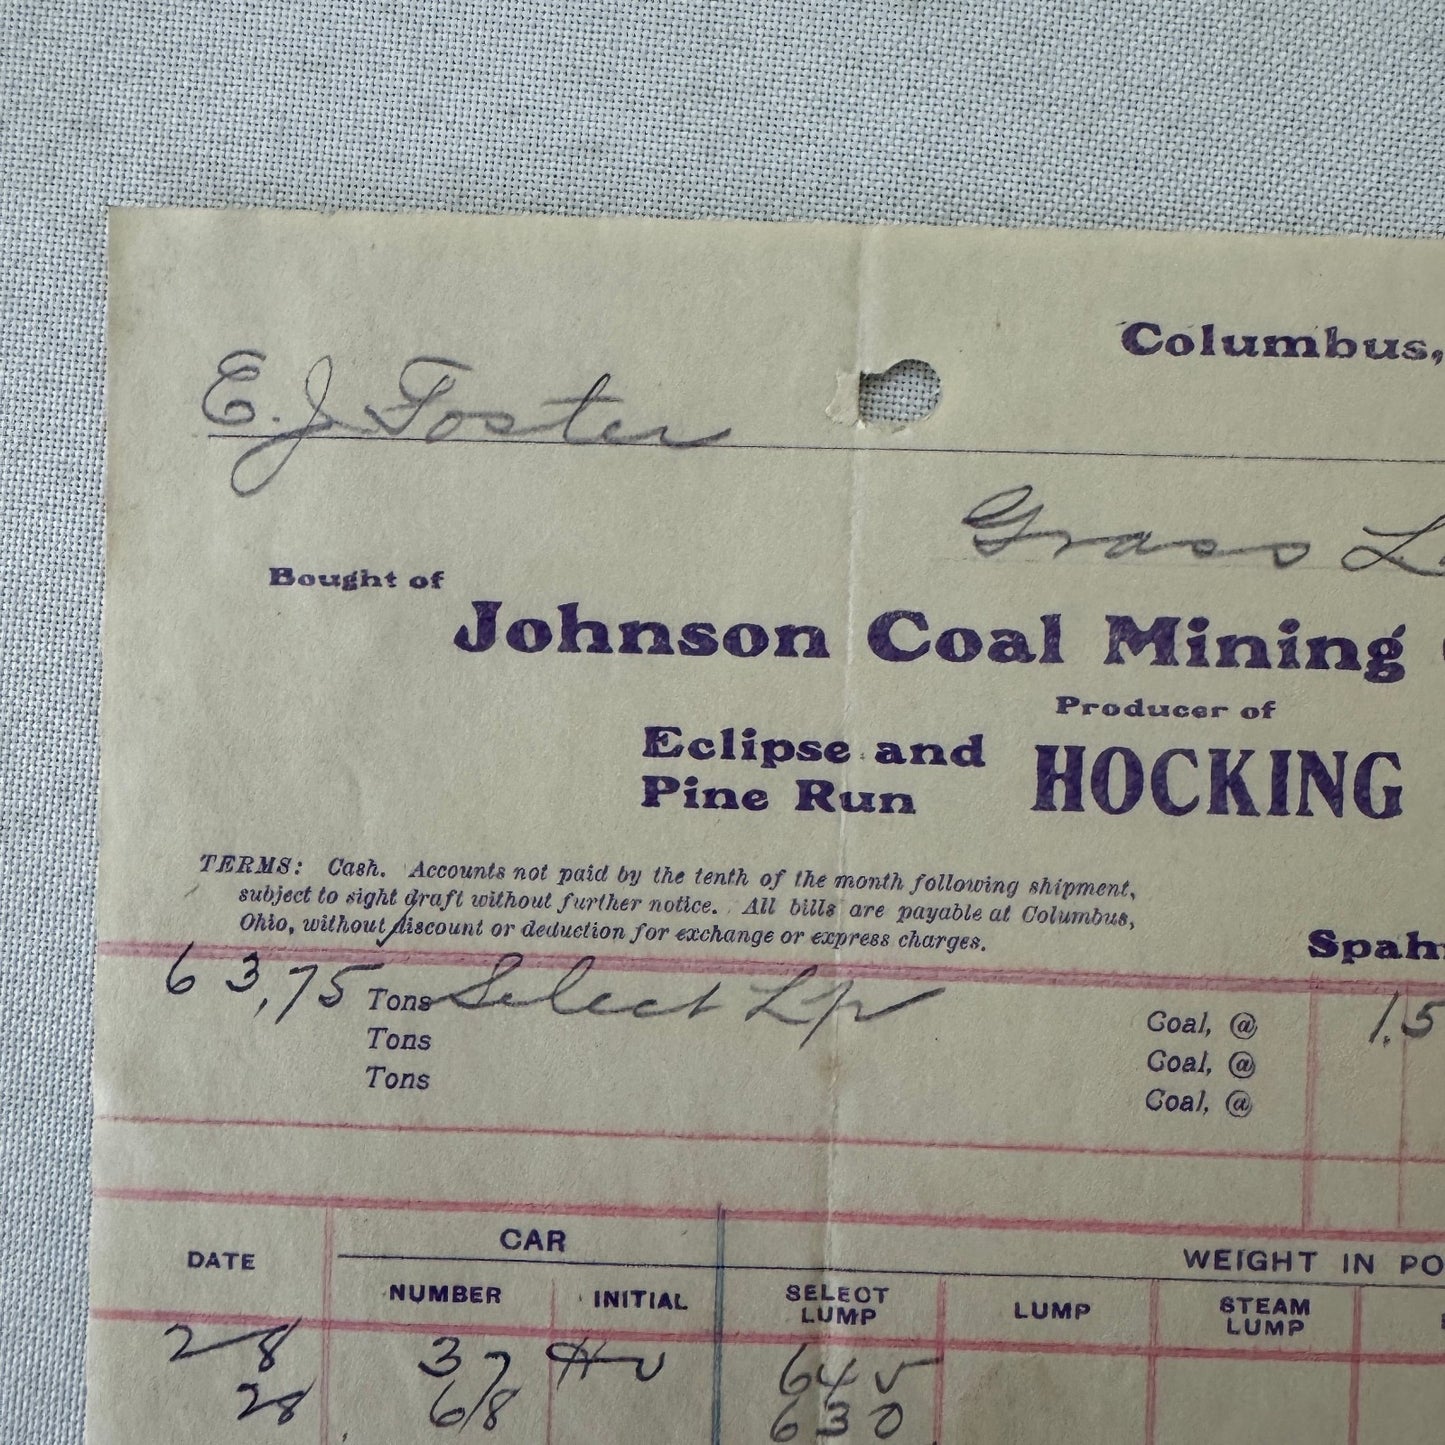 Columbus,
E. J. Foster
Grass L
Bought of
Johnson Coal Mining
Producer of
Eclipse and
Pine Run
HOCKING
TERMS: Cash. Accounts not paid by the tenth of the month following shipment,
subject to sight draft without further notice. All bills are payable at Columbus,
Ohio, without discount or deduction for exchange or express charges.
Spah
63,75 Tons Select Lp Coal, @ 1.5
Tons Coal, @
Tons Coal, @
DATE CAR WEIGHT IN PO
NUMBER INITIAL SELECT LUMP LUMP STEAM LUMP
28 37 Hv
28 68 630